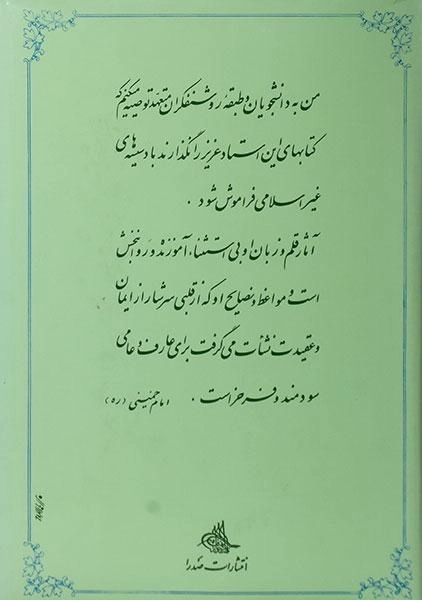 من به دانشجویان و طبقهٔ روشنفکران متعهد توصیه میکنم که
کتابهای این استاد عزیز را نگذارند با دسیسه های
غیر اسلامی فراموش شود .
آثار قلم و زبان او بی استثناء آموزنده و روانبخش
است و مواعظ و نصایح او که از قلبی سرشار از ایمان
و عقیدت نشأت می گرفت برای عارف و عامی
سودمند و فرحزاست . امام خمینی (ره)
انتشارات صدرا